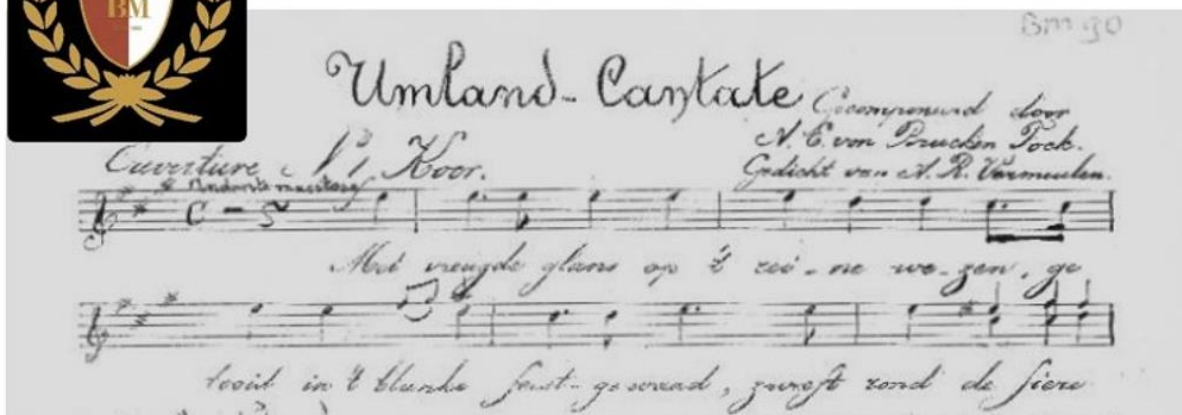 BM
BM 90
Umland-Cantate
Gecomponeerd door
N. C. von Brucken Fock.
Gedicht van A. R. Vermeulen.
Ouverture Nº 1, Koor.
Andante maestoso
C
Met vreugde glans op 't rei-ne we-zen, ge
tooit in 't blanke feest-gewaad, zweeft rond de fiere